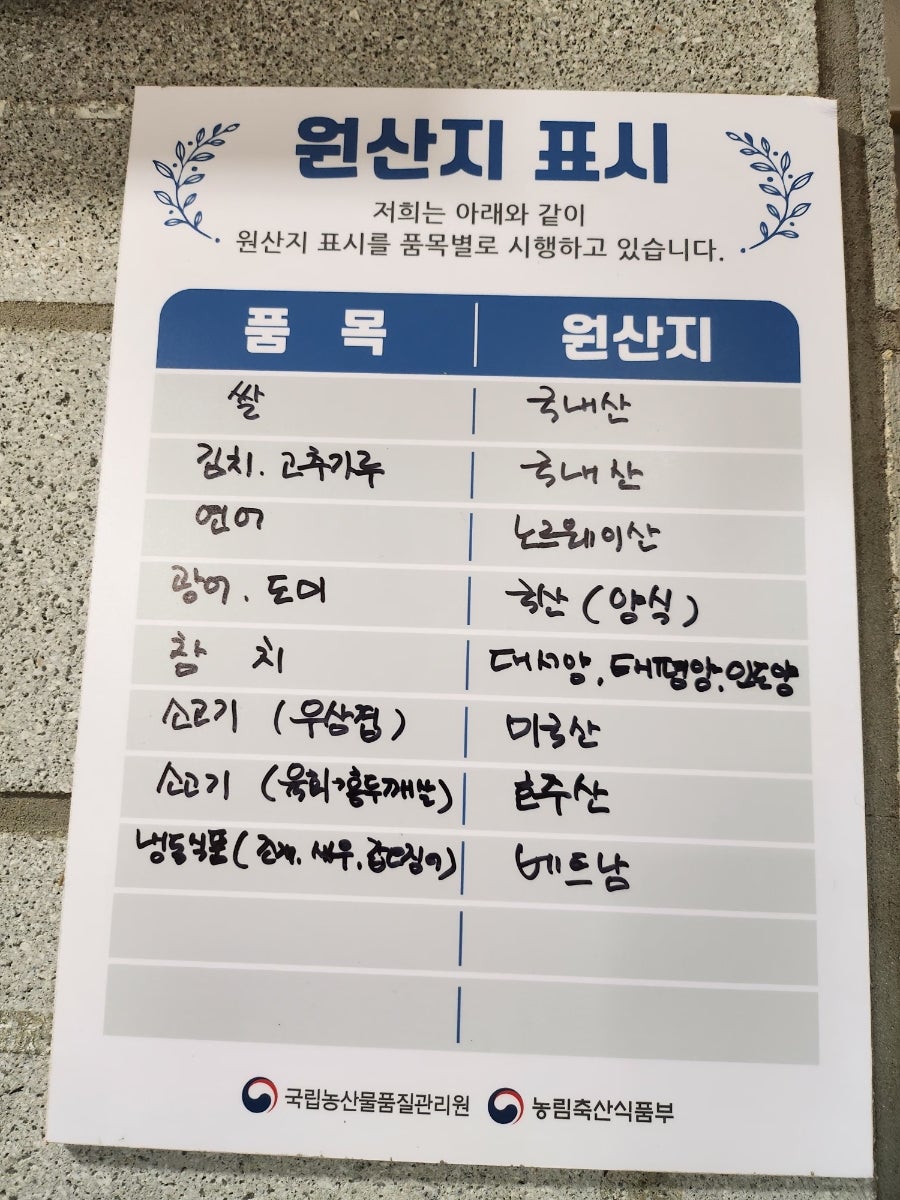 원산지 표시
저희는 아래와 같이
원산지 표시를 품목별로 시행하고 있습니다.
품 목 원산지
쌀 국내산
김치. 고추가루 국내산
연어 노르웨이산
광어. 도미 국산 (양식)
참 치 대서양, 태평양, 인도양
소고기 (우삼겹) 미국산
소고기 (육회, 홍두깨살) 호주산
냉동식품 (조개, 새우, 갑오징어) 베트남
국립농산물품질관리원 농림축산식품부